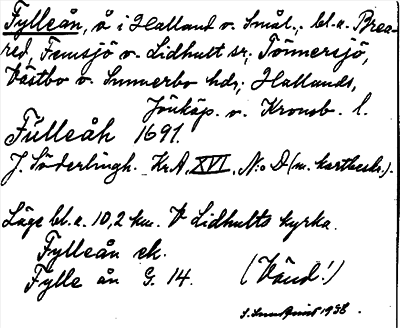 Fylleån, å i Halland o. Smål., bl.a. Brea-
red, Femsjö o. Lidhult sr; Tönnersjö,
Västbo o. Sunnerbo hdr; Hallands,
Jönköp. o. Kronob. l.
Fülleåh 1691.
J. Söderlingh. Kr.A. XVI, N:o D (m. kartbeskr.).
Läge bl.a. 10,2 km. V Lidhults kyrka.
Fylleån ek.
Fylle ån G. 14. (Vänd!)
1938.